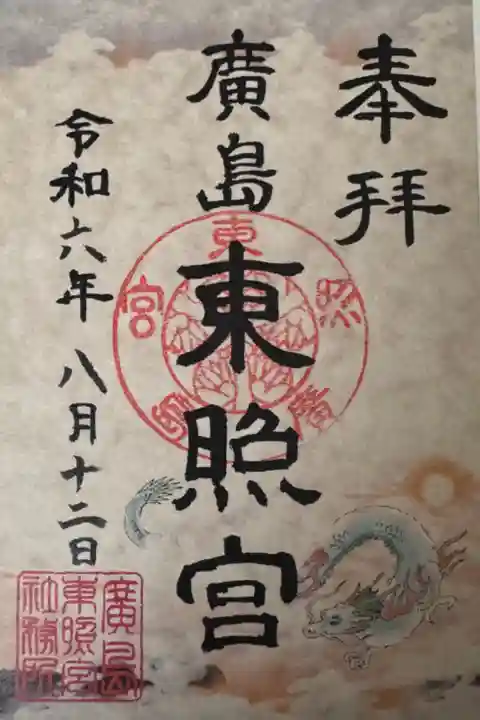 奉拝
廣島東照宮
令和六年八月十二日
東照宮廣島
廣島
東照宮
社務所